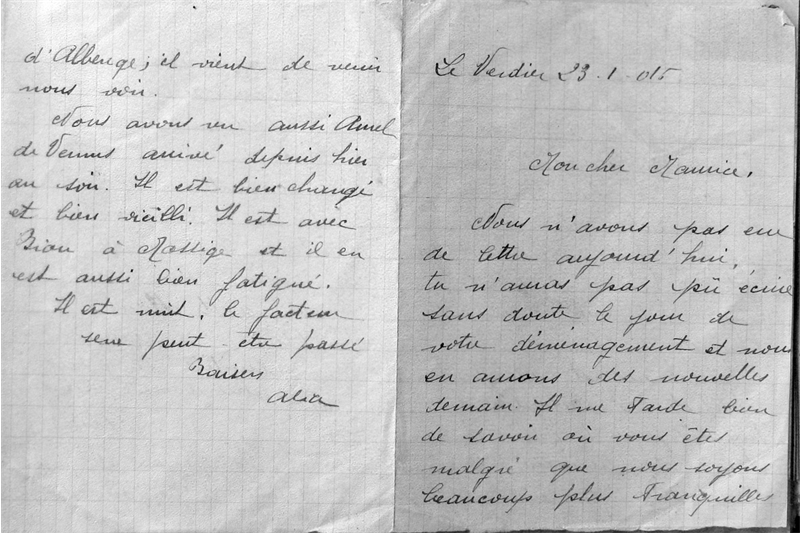 Le Verdier 23-1-015
Mon cher Maurice,
Nous n'avons pas eu
de lettre aujourd'hui,
tu n'auras pas pû écrire
sans doute le jour de
votre déménagement et nous
en aurons des nouvelles
demain. Il me Tarde bien
de savoir où vous êtes
malgré que nous soyons
beaucoup plus Tranquilles
d'Albenge; il vient de venir
nous voir.
Nous avons vu aussi
de Vennes arrivé depuis hier
au soir. Il est bien changé
et bien vieilli. Il est avec
à Massige et il en
est aussi bien fatigué.
Il est nuit, le facteur
sera peut-etre passé
Baisers